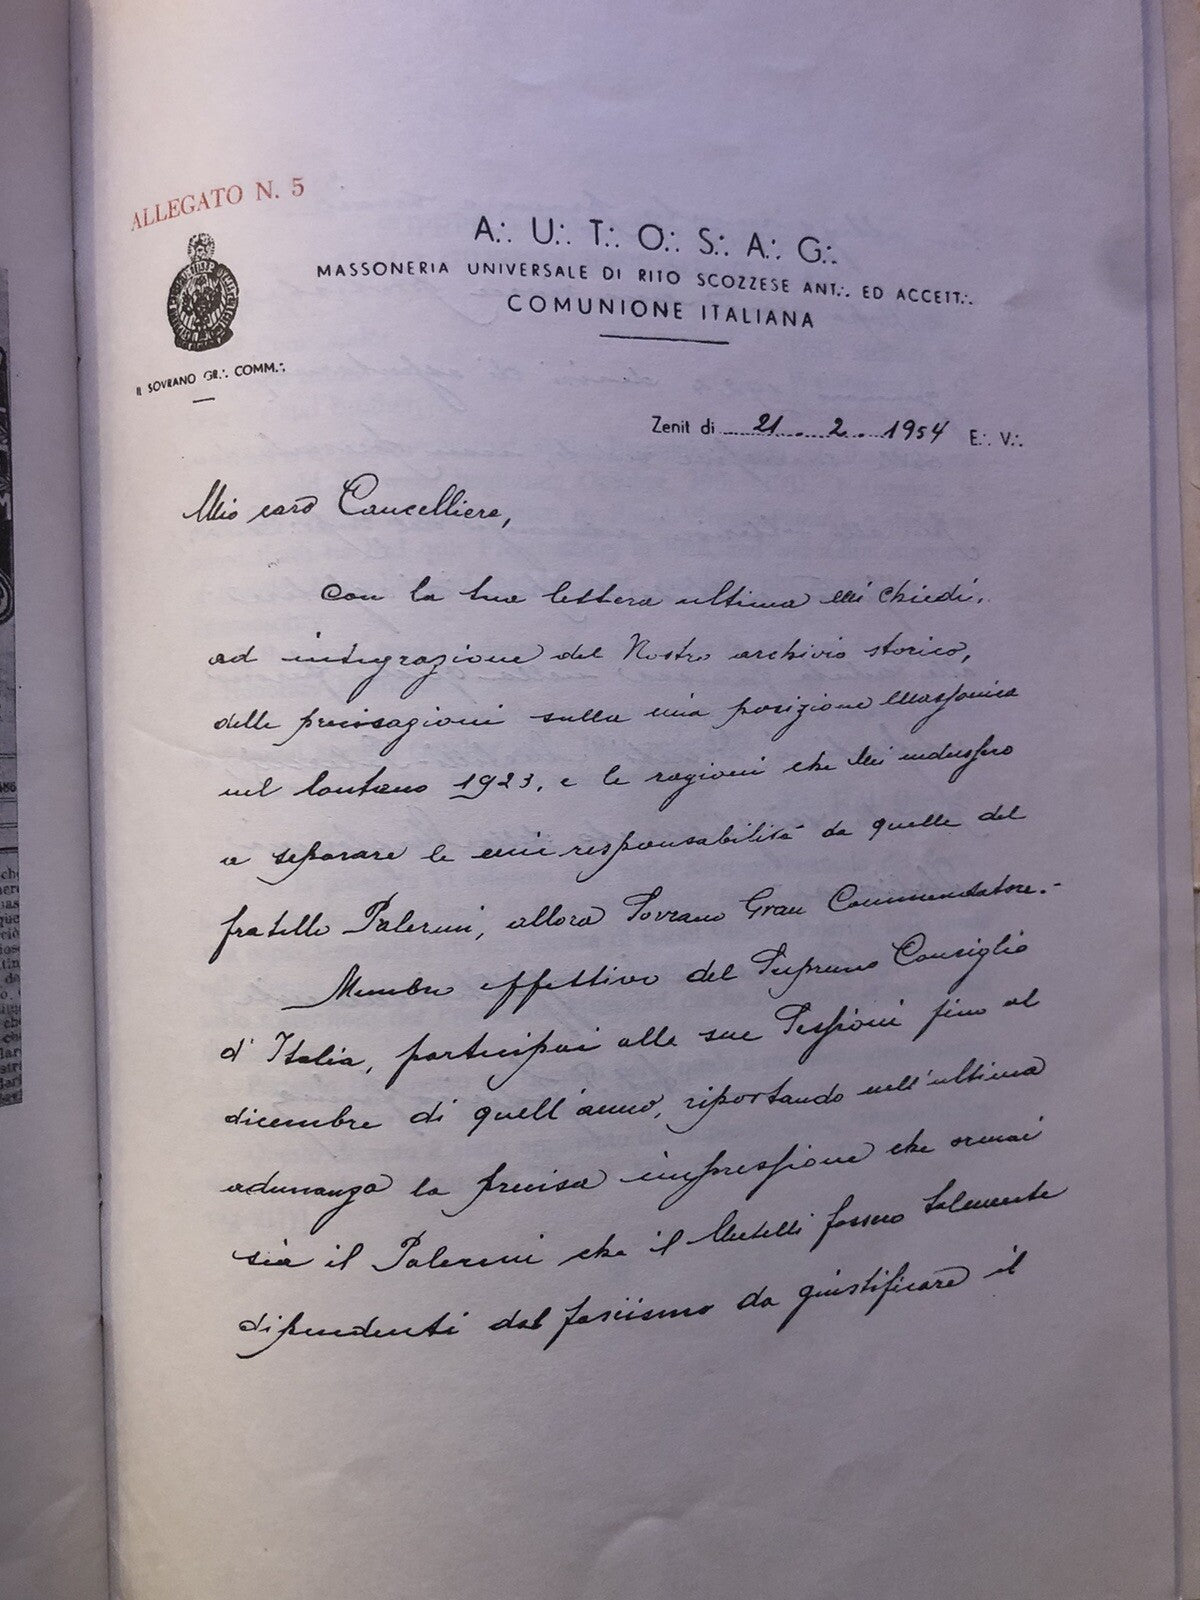 ALLEGATO N. 5
A∴ U∴ T∴ O∴ S∴ A∴ G∴
MASSONERIA UNIVERSALE DI RITO SCOZZESE ANT∴ ED ACCETT∴
COMUNIONE ITALIANA
IL SOVRANO GR∴ COMM∴
Zenit di 21. 2. 1954 E∴ V∴
Mio caro Cancelliere,
con la tua lettera ultima Mi chiedi,
ad integrazione del Nostro archivio storico,
delle precisazioni sulla mia posizione Massonica
nel lontano 1923, e le ragioni che Mi indussero
a separare le mie responsabilità da quelle del
fratello Palermi, allora Sovrano Gran Commendatore.-
Membro effettivo del Supremo Consiglio
d'Italia, partecipai alle sue Sessioni fino al
dicembre di quell'anno, riportando nell'ultima
adunanza la precisa impressione che ormai
sia il Palermi che il fossero talmente
dipendenti dal fascismo da giustificare il